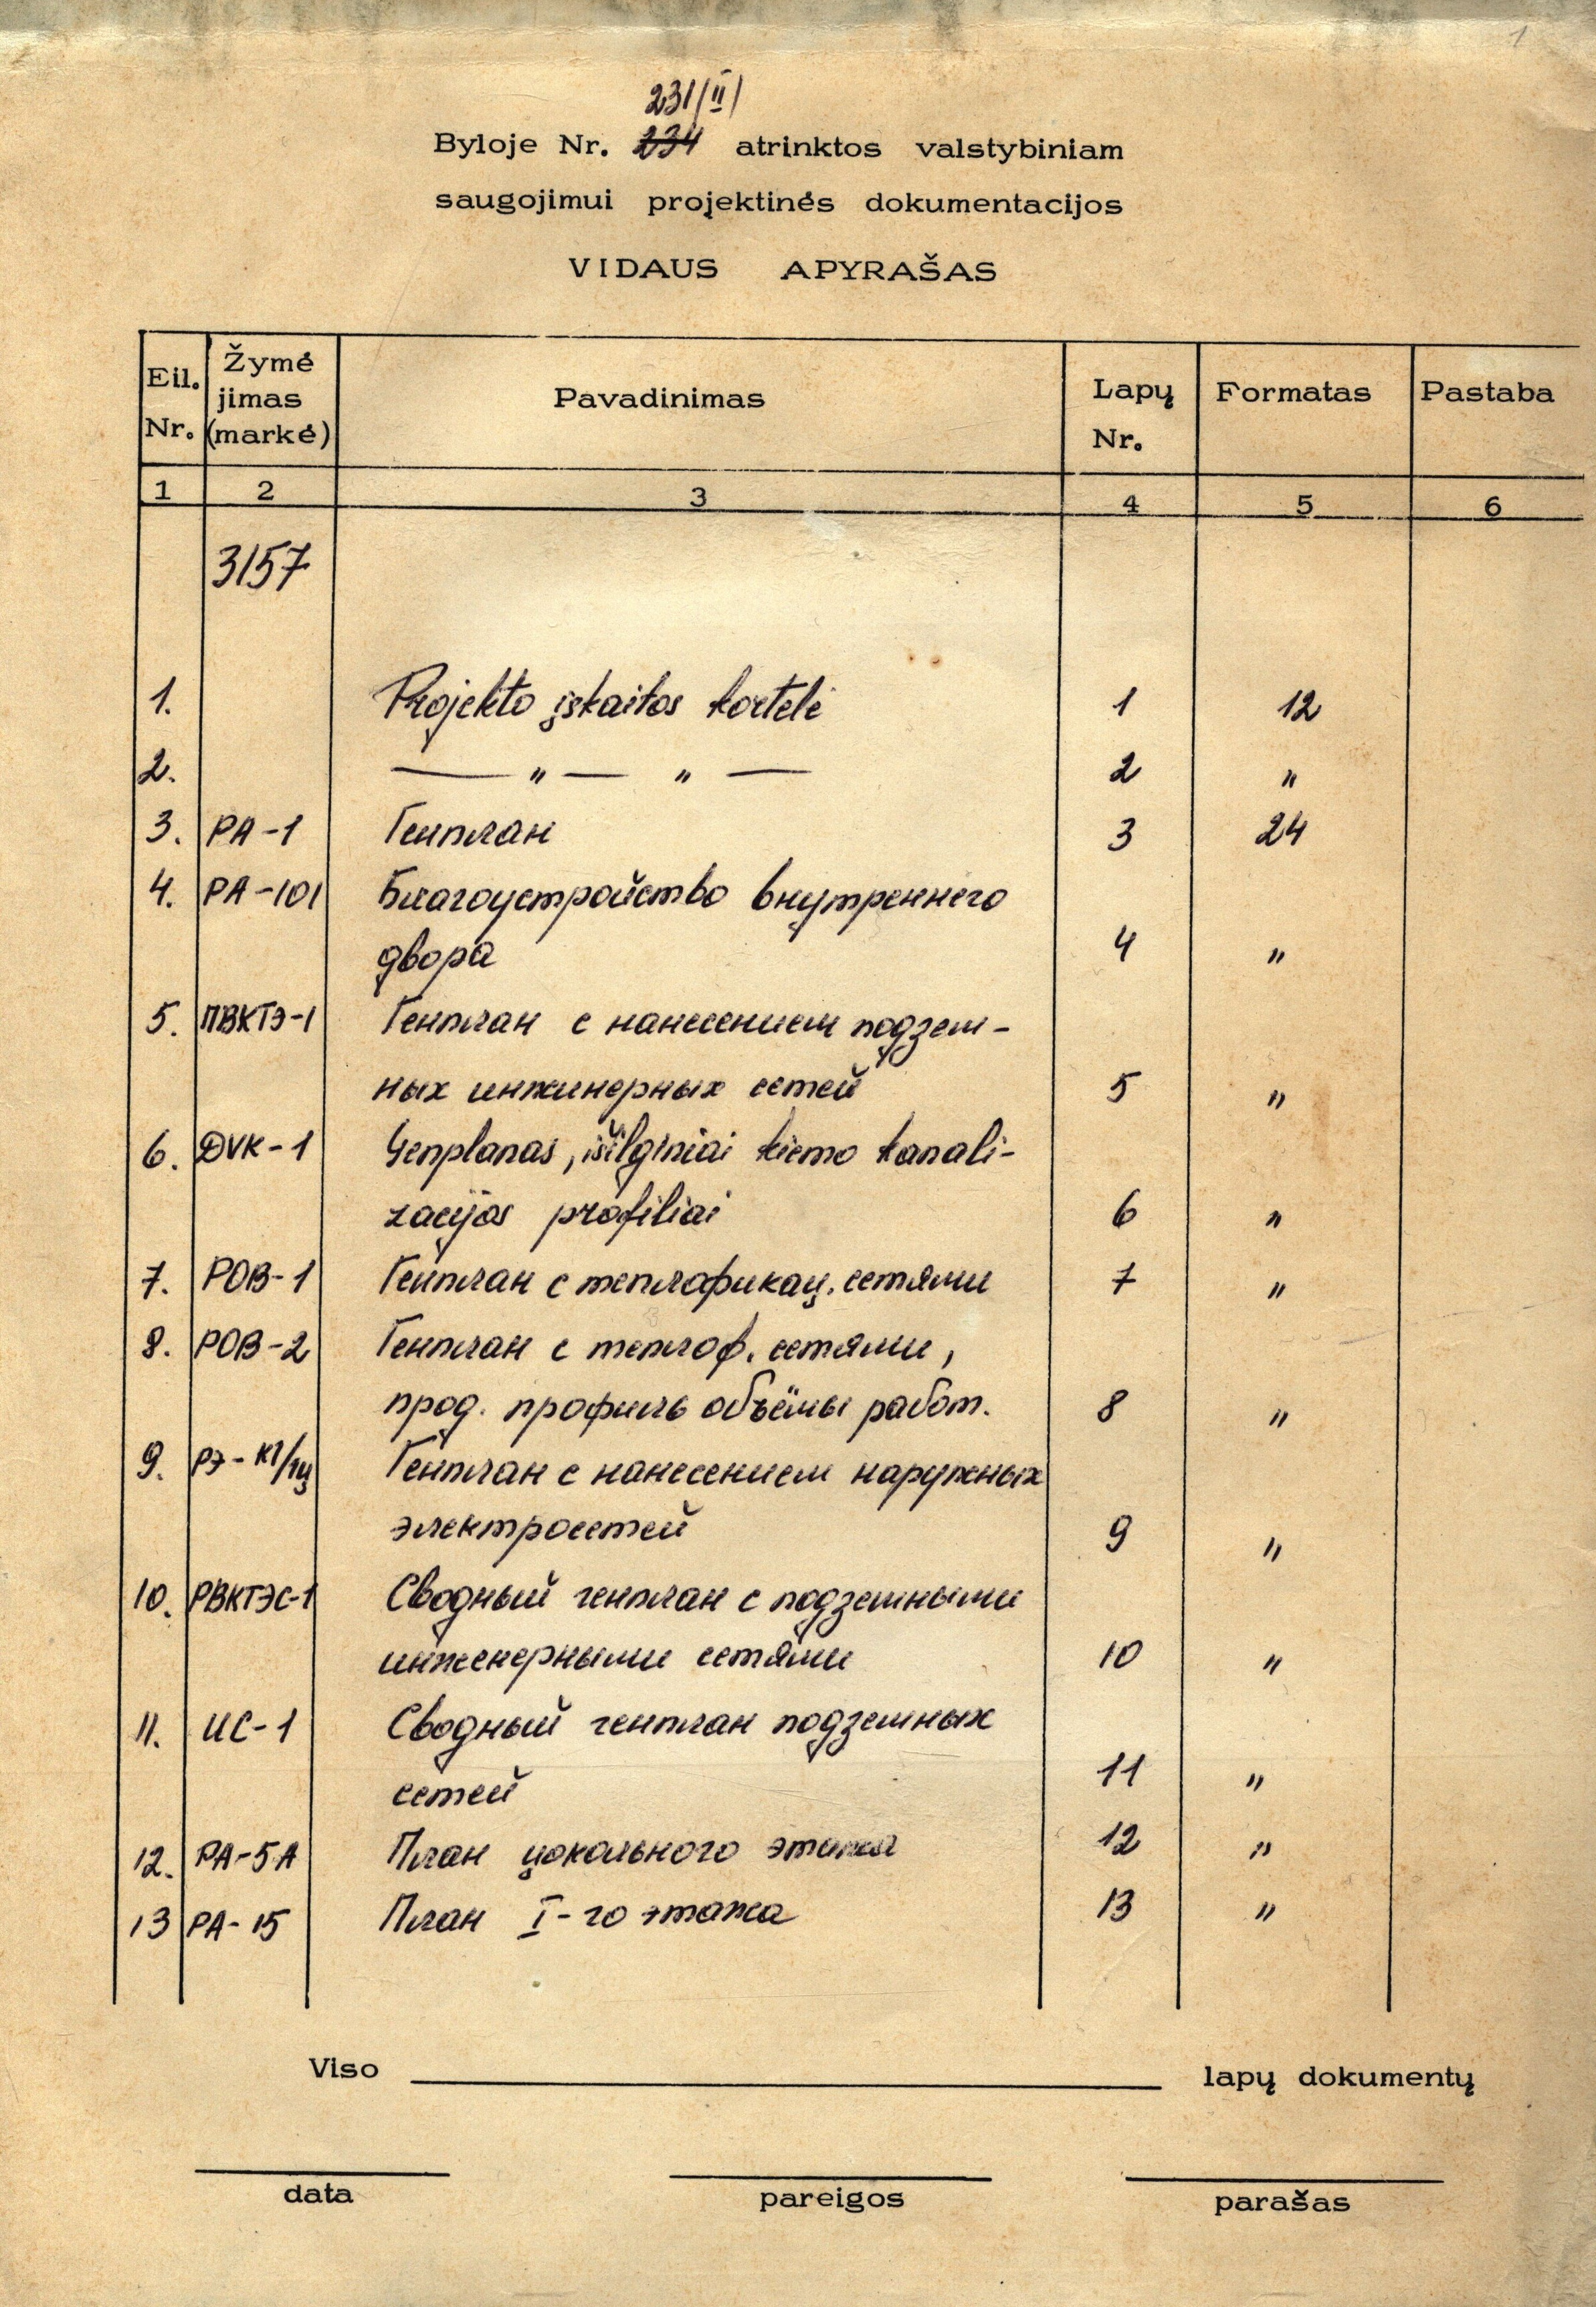 1
231/II/
Byloje Nr. 234 atrinktos valstybiniam
saugojimui projektinės dokumentacijos
VIDAUS APYRAŠAS
Eil. Nr. Žymėjimas (markė) Pavadinimas Lapų Nr. Formatas Pastaba
1 2 3 4 5 6
3157
1. Projekto įskaitos kortelė 1 12
2. —— " — " — 2 "
3. РА-1 Генплан 3 24
4. РА-101 Благоустройство внутреннего
двора 4 "
5. ПВКТЭ-1 Генплан с нанесением подзем-
ных инжинерных сетей 5 "
6. DVK-1 Genplanas, išilginiai kiemo kanali-
zacijos profiliai 6 "
7. РОВ-1 Генплан с теплофикац. сетями 7 "
8. РОВ-2 Генплан с теплоф. сетями,
прод. профиль объёмы работ. 8 "
9. РЭ-К1/1ц Генплан с нанесением наружных
электросетей 9 "
10. РВКТЭС-1 Сводный генплан с подземными
инженерными сетями 10 "
11. ИС-1 Сводный генплан подземных
сетей 11 "
12. РА-5А План цокольного этажа 12 "
13 РА-15 План I-го этажа 13 "
Viso lapų dokumentų
data pareigos parašas